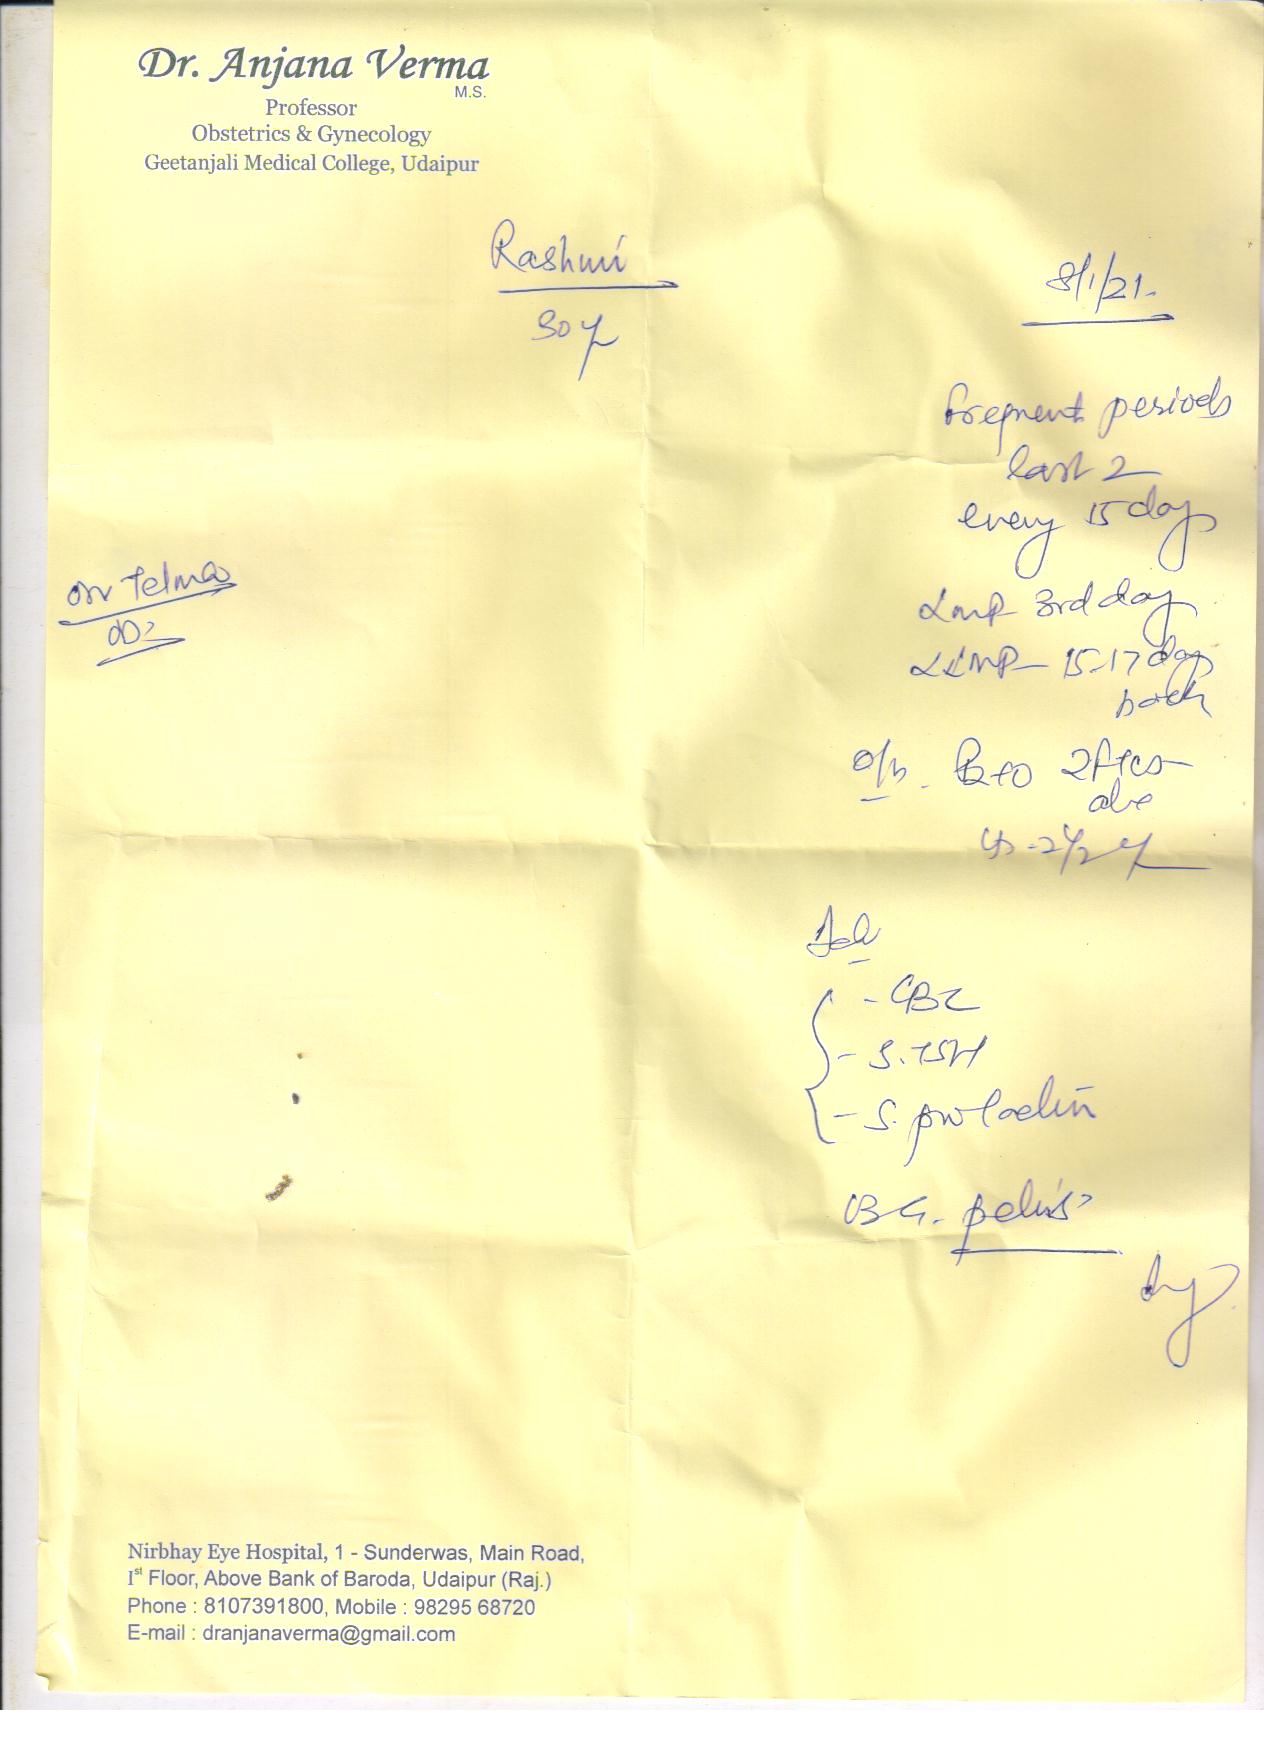 Dr. Anjana Verma
M.S.
Professor
Obstetrics & Gynecology
Geetanjali Medical College, Udaipur
Rashmi
30 y
8/1/21.
frequent periods
last 2
every 15 days
on Telma
LMP 3rd day
LLMP - 15-17 days
back
o/h. P2+0 2 FTCS
Adv
- CBC
- S. TSH
- S. prolactin
pelvis
Nirbhay Eye Hospital, 1 - Sunderwas, Main Road,
1st Floor, Above Bank of Baroda, Udaipur (Raj.)
Phone : 8107391800, Mobile : 98295 68720
E-mail : dranjanaverma@gmail.com